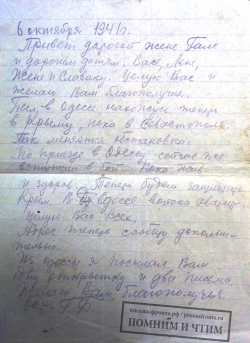 6 октября 1941 г.
Привет дорогой жене Гале
и дорогим детям, Васе, Лене,
Жене и Славику. Целую Вас и
желаю Вам благополучия.
Был в Одессе нахожусь теперь
в Крыму, пока в Севастополе.
Так меняется обстановка.
По приезде в Одессу сейчас же
вступили в бой. Пока жив
и здоров. Теперь будем защищать
Крым. В Одессе
Целую Вас Всех.
Адрес теперь сообщу дополни-
тельно.
Из Одессы я посылал Вам
одну открытку и два письма.
Желаю Вам благополучия.
ПОМНИМ И ЧТИМ